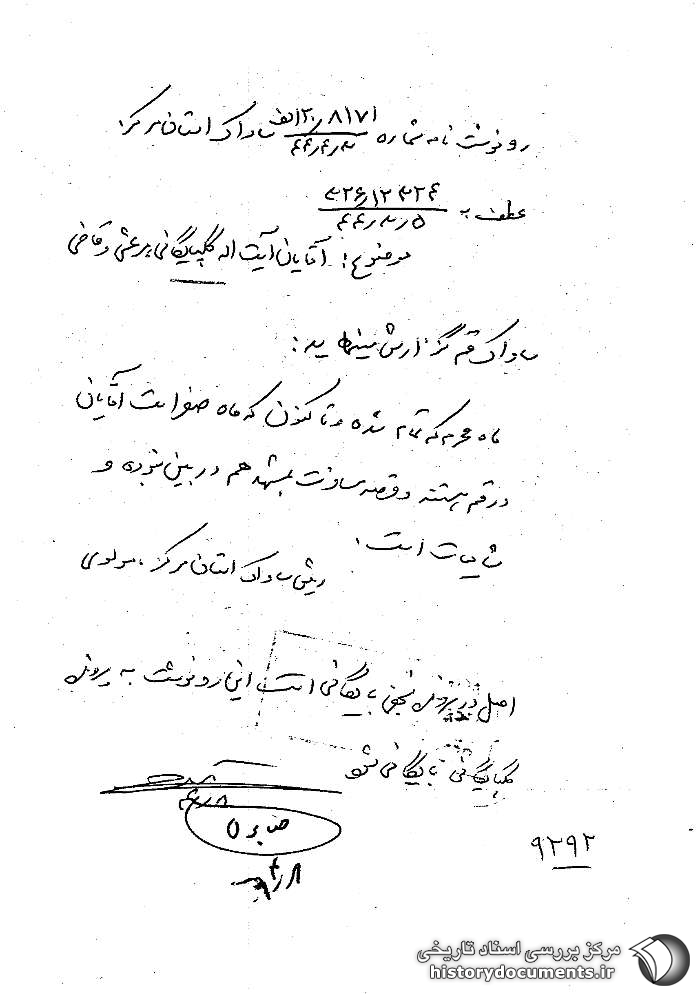 رونوشت نامه شماره ۸۱۷۱/۲۰ الف ساواک استان مرکز.
۴۴/۴/۳
عطف به ۳۲۶/۱۲۳۲۴
۴۴/۳/۵
موضوع: آقایان آیت اله گلپایگانی مرعشی و قاضی
ساواک قم گزارش مینماید:
ماه محرم که تمام شده و تا کنون که ماه صفر است آقایان
در قم هستند و قصد مسافرت بمشهد هم در بین نبوده و
شایعات است.
رئیس ساواک استان مرکز، مولوی
اصل در پرونده نجفی بایگانی است این رونوشت به پرونده
گلپایگانی بایگانی شود
۴/۸
۹۲۹۲
مرکز بررسی اسناد تاریخی
historydocuments.ir